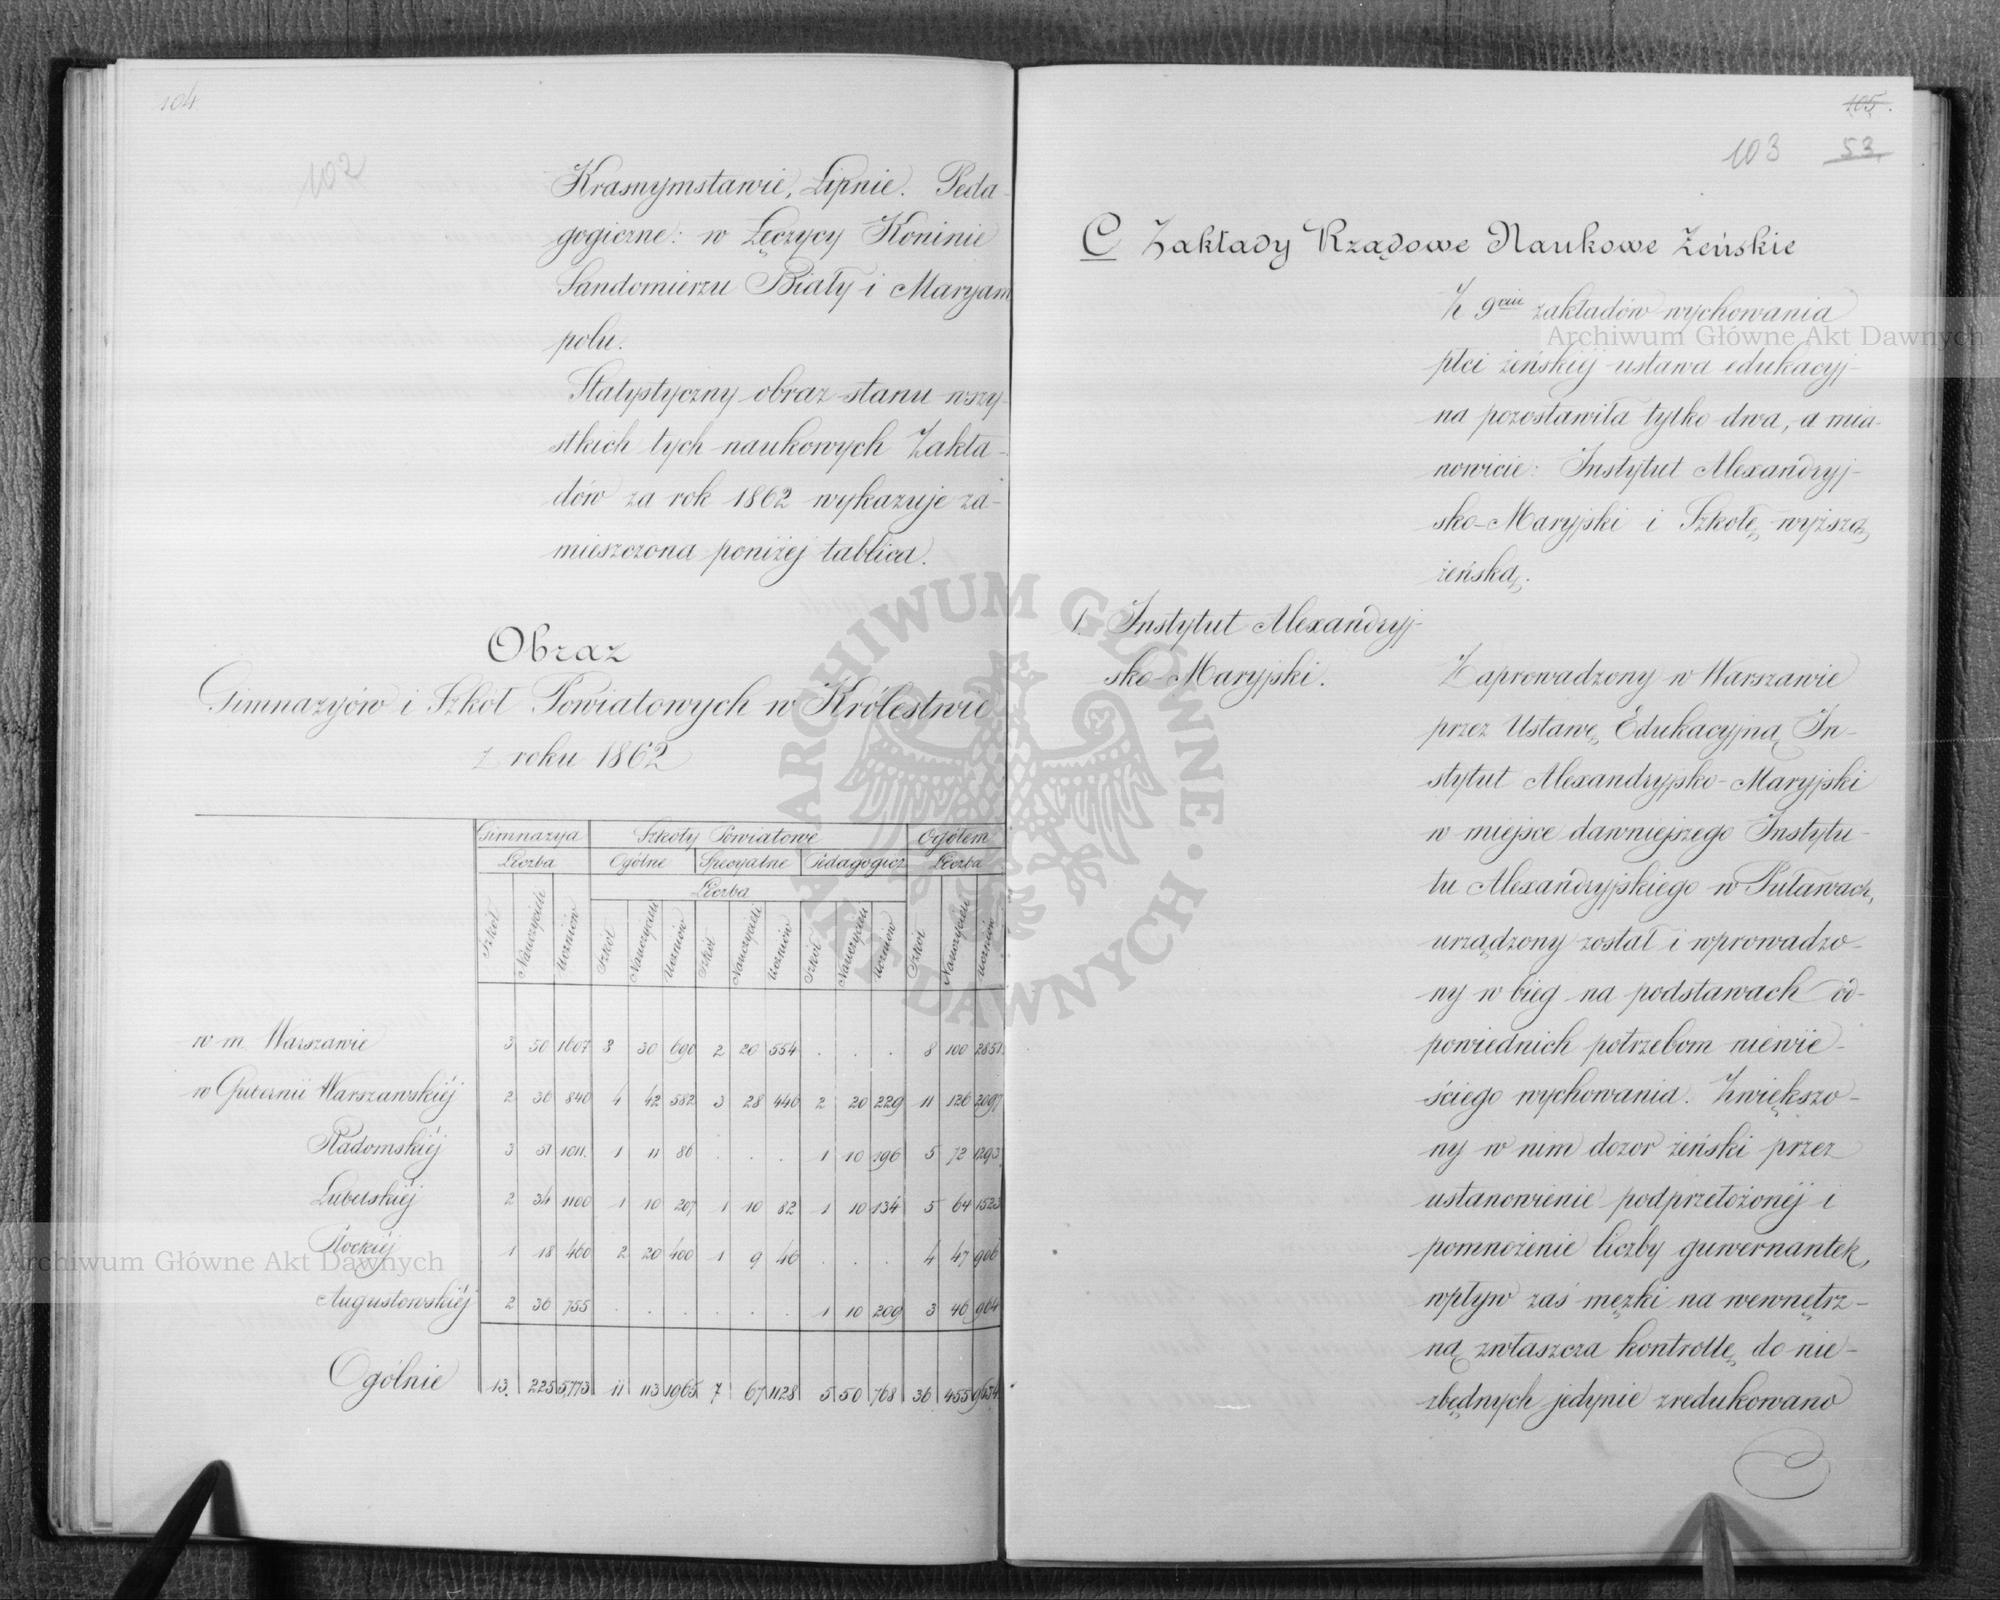 104
102
Krasnymstawie, Lipnie. Peda-
gogiczne: w Łęczycy Koninie
Sandomierzu Biały i Maryam
polu.
Statystyczny obraz stanu wszy-
stkich tych naukowych Zakła-
dów za rok 1862 wykazuje za-
mieszczona poniżej tablica.
Obraz
Gimnazyjów i Szkół Powiatowych w Królestwie
z roku 1862
Gimnazya Szkoły Powiatowe Ogółem
Liczba Ogólne Specyalne Pedagogicz Liczba
Liczba
Szkół Nauczycieli Uczniów Szkół Nauczycieli Uczniów Szkół Nauczycieli Uczniów Szkół Nauczycieli Uczniów Szkół Nauczycieli Uczniów
w m. Warszawie 3 50 1607 3 30 690 2 20 554 . . . 8 100 2851
w Gubernii Warszawskiéj 2 36 840 4 42 582 3 28 446 2 20 229 11 126 2097
Radomskiéj 3 51 1011. 1 11 86 . . . 1 10 196 5 72 1293
Lubelskiéj 2 34 1100 1 10 207 1 10 82 1 10 134 5 64 1523
Płockiéj 1 18 460 2 20 400 1 9 46 . . . 4 47 906
Augustowskiéj 2 36 755 . . . . . . 1 10 209 3 46 964
Ogólnie 13. 225 5,773 11 113 1965 7 67 1128 5 50 768 36 455 9634
105.
103 53.
C Zakłady Rządowe Naukowe Żeńskie
Z 9ciu zakładów wychowania
płci żeńskiéj ustawa edukacyj-
na pozostawiła tylko dwa, a mia-
nowicie: Instytut Alexandryj-
sko-Maryjski i Szkołę wyższą
żeńską.
1. Instytut Alexandryj-
sko-Maryjski.
Zaprowadzony w Warszawie
przez Ustawę Edukacyjną In-
stytut Alexandryjsko-Maryjski
w miejsce dawniejszego Instytu-
tu Alexandryjskiego w Puławach,
urządzony został i wprowadzo-
ny w bieg na podstawach od-
powiednich potrzebom niewie-
ściego wychowania. Zwiększo-
ny w nim dozor żeński przez
ustanowienie podprzełożonéj i
pomnożenie liczby guwernantek,
wpływ zaś męzki na wewnętrz-
ną zwłaszcza kontrollę do nie-
zbędnych jedynie zredukowano
Archiwum Główne Akt Dawnych
Archiwum Główne Akt Dawnych
ARCHIWUM GŁÓWNE · AKT DAWNYCH ·